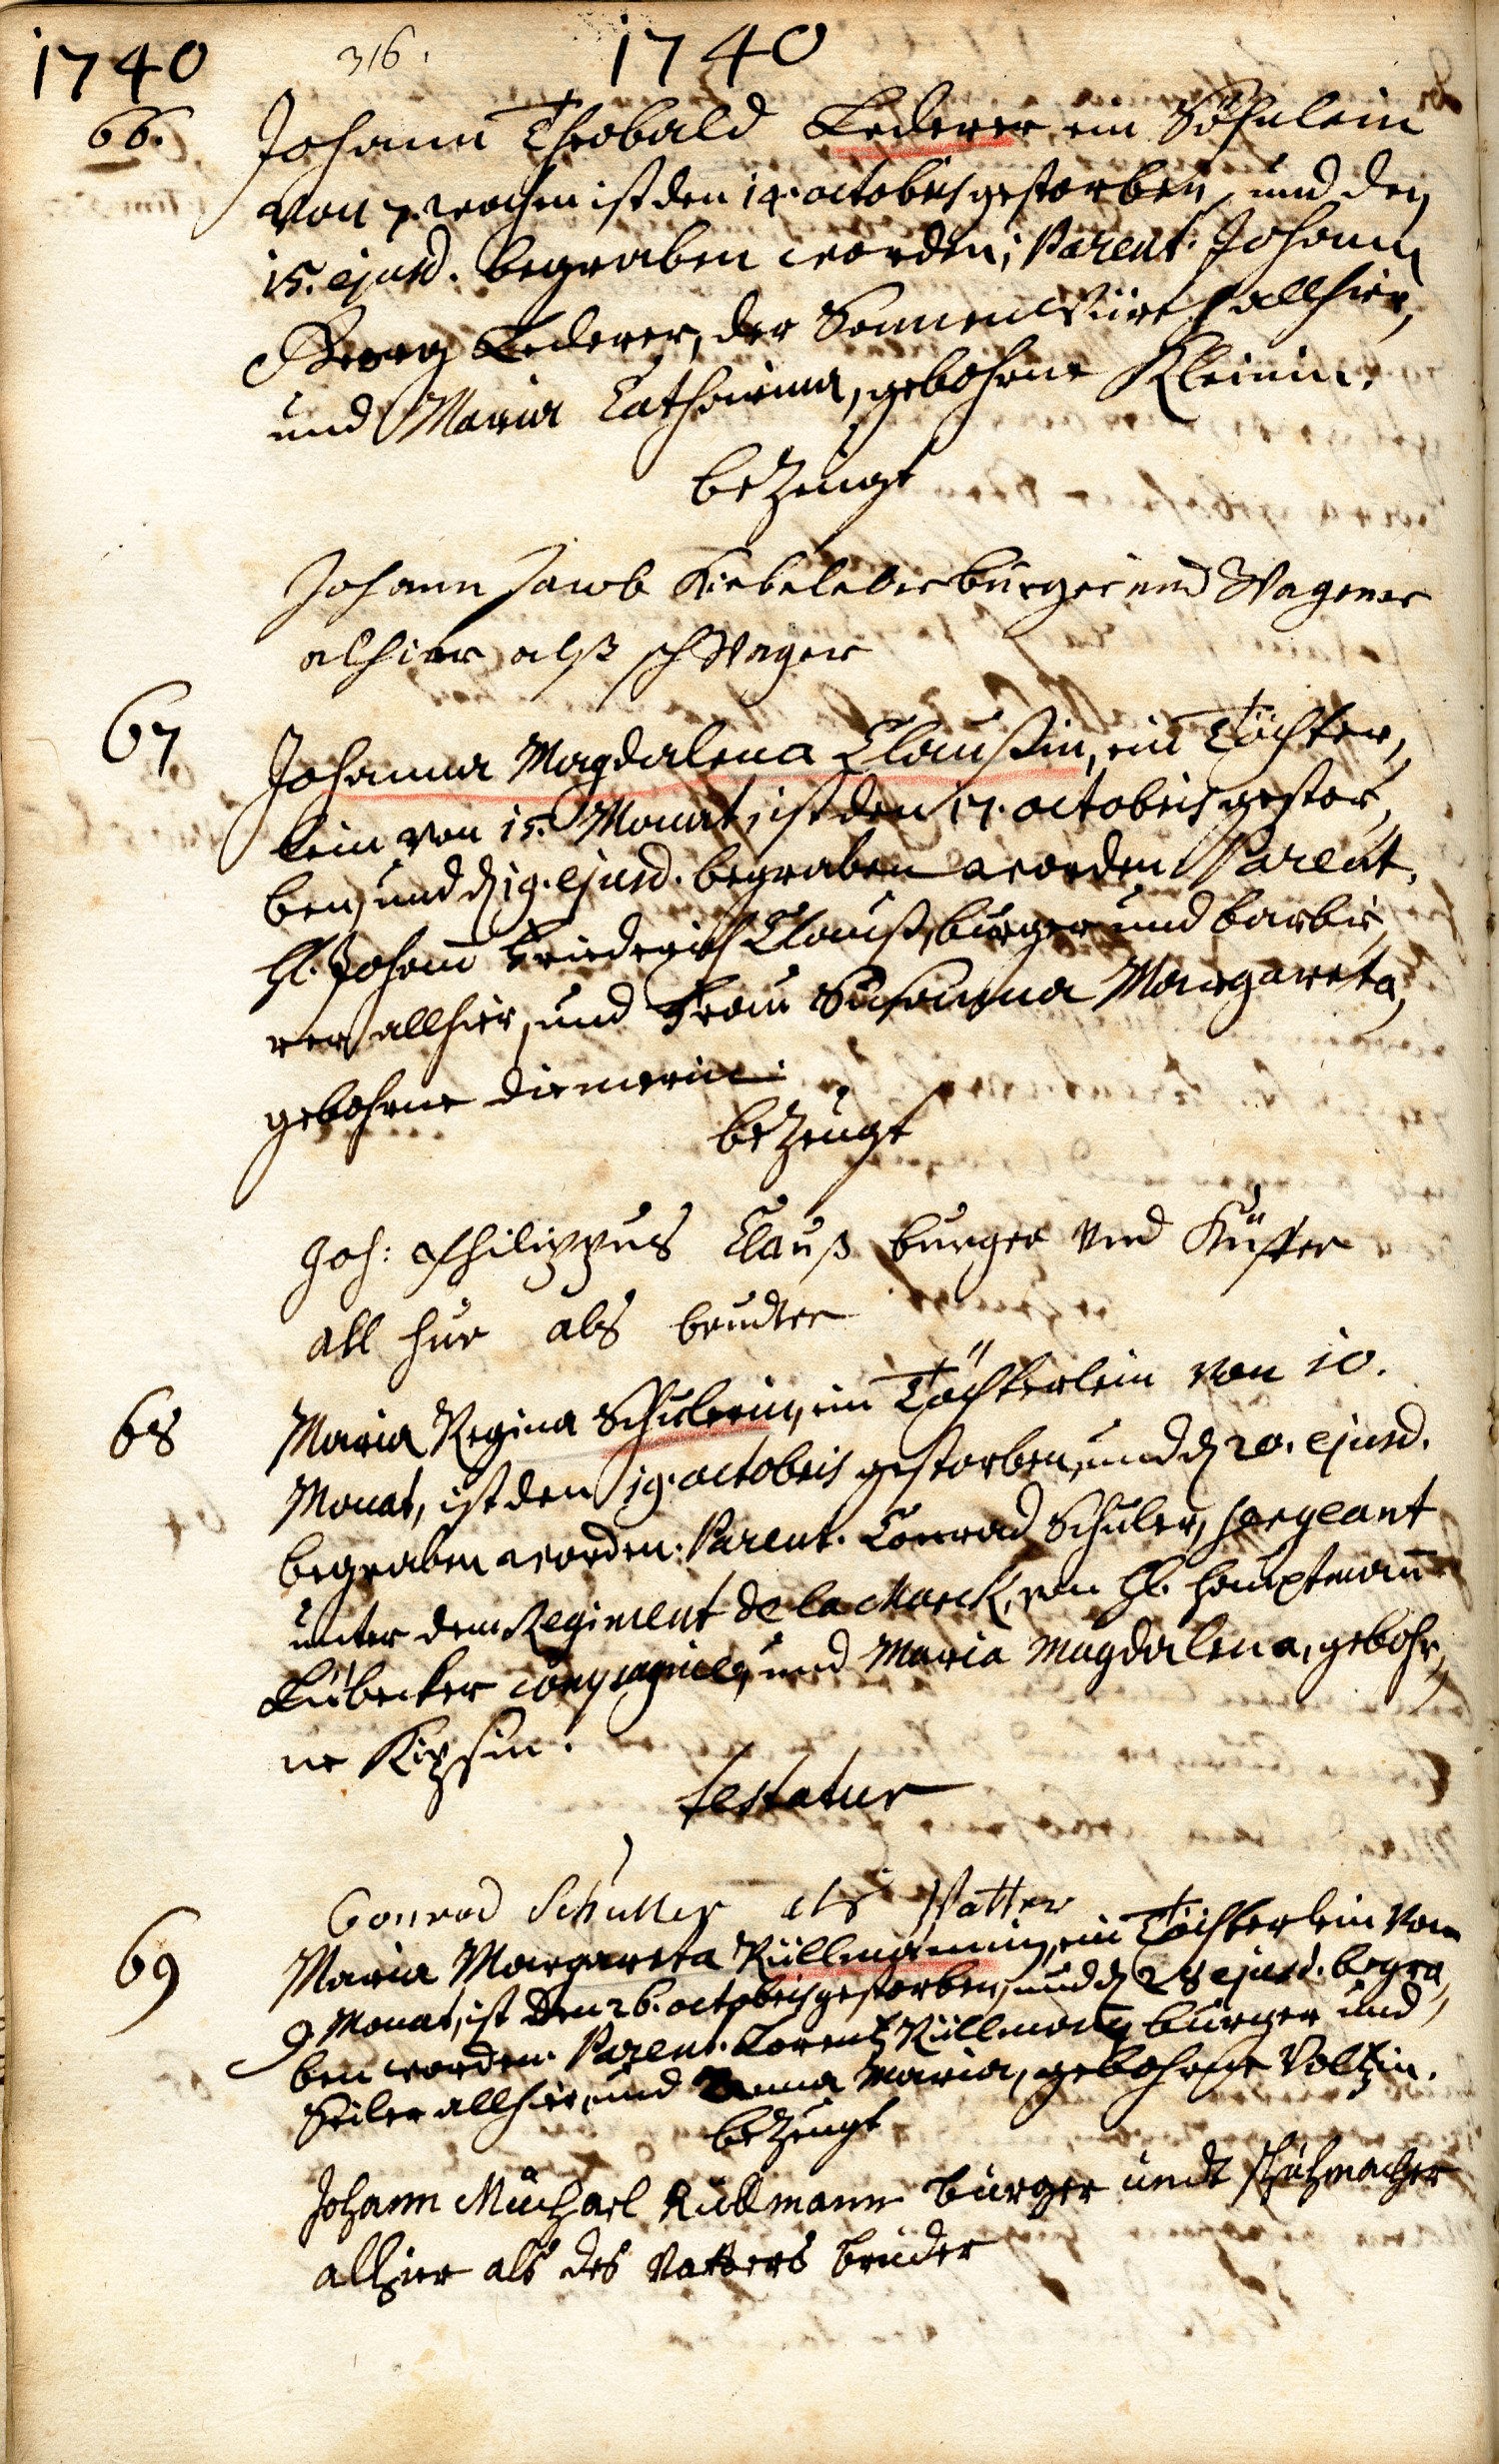 1740 316. 1740
66. Johann Theobald Lederer, ein Söhnlein
von 7. wochen ist den 14. octobris gestorben, und den
15. ejusd. begraben worden; Parent. Johann
Georg Lederer, der Sonnen Würth allhier,
und Maria Catharina, gebohrne Kleinin.
bezeugt
Johann Jacob burger und Wagener
alhier alß schwager
67 Johanna Magdalena Claußin, ein Töchter,
lein von 15. Monat, ist den 17. octobris gestor,
ben, und d. 19. ejusd. begraben worden Parent.
H. Johann Friederich Clauß, burger und barbie,
rer allhier, und Frau Susanna Margareta,
gebohrne Diemerin.
bezeugt
Joh: Philippus Clauß burger Und Küffer
all hier als bruder
68 Maria Regina Schulerin, ein Töchterlein von 10.
Monat, ist den 19. octobris gestorben, und d. 20. ejusd.
begraben worden. Parent. Conrad Schuler, sergeant
unter dem Regiment de la Marck, von H. Hauptmann
Lübecker compagnie, und Maria Magdalena, gebohr,
ne
testatur
Conrad Schuller als Vatter
69 Maria Margareta Rüllmännin, ein Töchterlein von
9 Monat, ist den 26. octobris gestorben, und d. 28 ejusd. begra,
ben worden. Parent. Lorentz Rüllmann burger und
Seiler allhier, und Anna Maria, gebohrne Voltzin.
bezeugt
Johann Michael Rullmann burger undt schuhmacher
allhier als des Vatters bruder